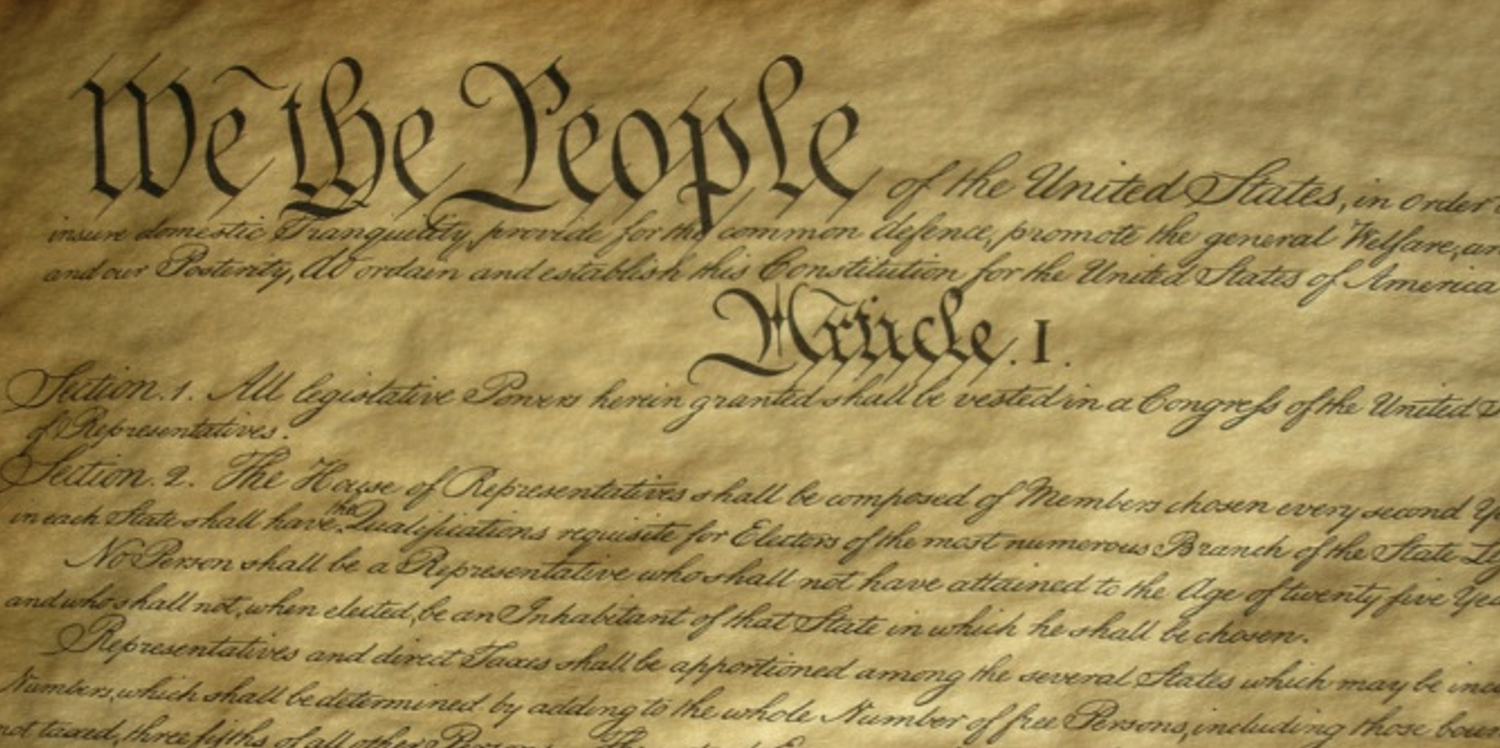 We the People of the United States, in order
insure domestic Tranquility, provide for the common defence, promote the general Welfare, an
and our Posterity, do ordain and establish this Constitution for the United States of America
Article. I.
Section. 1. All legislative Powers herein granted shall be vested in a Congress of the United
of Representatives.
Section. 2. The House of Representatives shall be composed of Members chosen every second Ye
in each State shall have the Qualifications requisite for Electors of the most numerous Branch of the State Leg
No Person shall be a Representative who shall not have attained to the Age of twenty five Yea
and who shall not, when elected, be an Inhabitant of that State in which he shall be chosen.
Representatives and direct Taxes shall be apportioned among the several States which may be inc
Numbers, which shall be determined by adding to the whole Number of free Persons, including those boun
not taxed, three fifths of all other Persons.